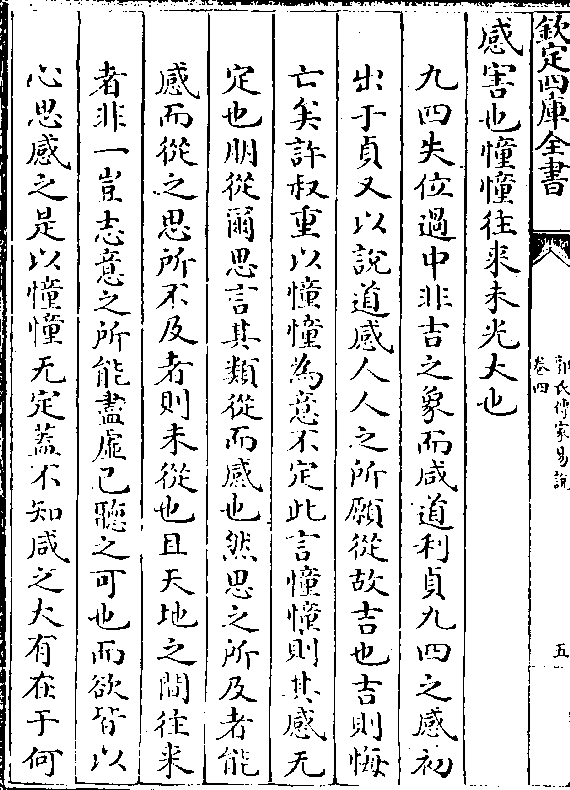 欽定四庫全書
郭氏傳家易說
卷四
五
感害也憧憧往來未光大也
九四失位過中非吉之象而咸道利貞九四之感初
出于貞又以說道感人人之所願從故吉也吉則悔
亡矣許叔重以憧憧為意不定此言憧憧則其感无
定也朋從爾思言其類從而感也然思之所及者能
感而從之思所不及者則未從也且天地之間往來
者非一豈志意之所能盡虛已聽之可也而欲皆以
心思感之是以憧憧无定蓋不知咸之大有在于何